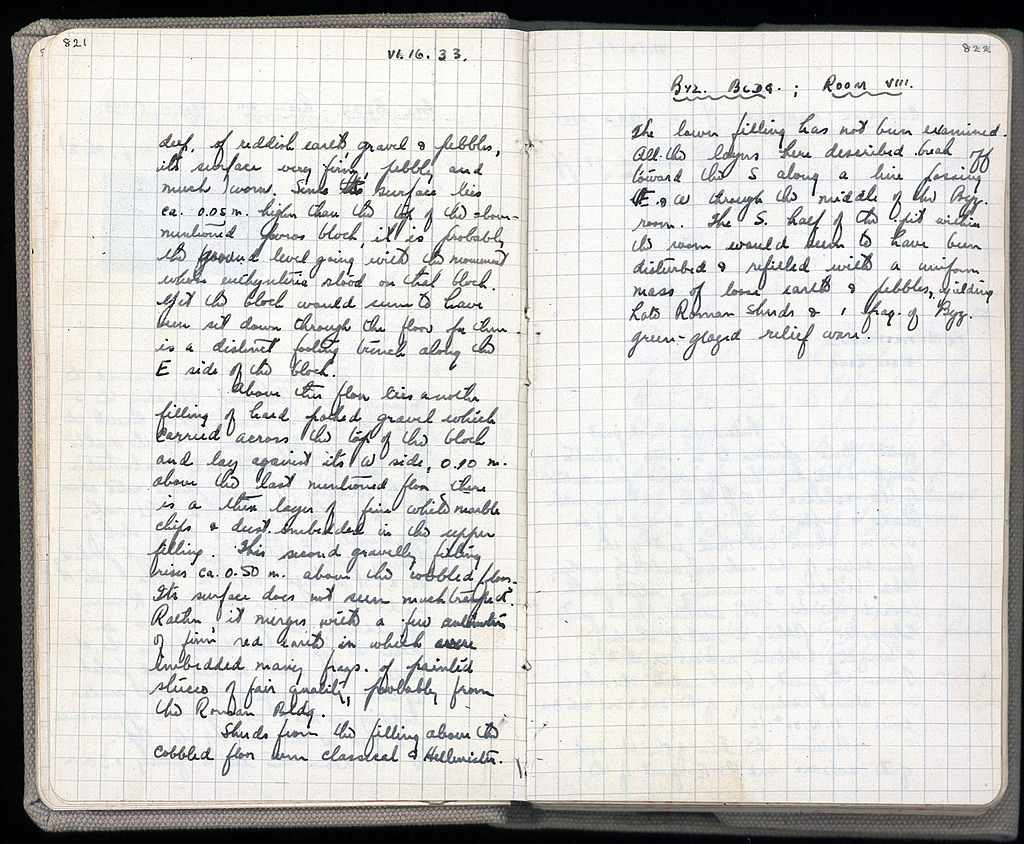 821
VI. 16. 33.
deep, of reddish earth, gravel & pebbles,
its surface very firm, pebbly and
much worn. Since this surface lies
ca. 0.05 m. higher than the top of the above-
mentioned poros block it is probably
the ground level going with the monument
whose euthynteria stood on that block.
Yet the block would seem to have
been set down through the floor for there
is a distinct footing trench along the
E side of the block.
Above this floor lies another
filling of hard packed gravel which
carried across the top of the block
and lay against its W side, 0.10 m.
above the last mentioned floor there
is a thin layer of fine white marble
chips & dust embedded in the upper
filling. This second gravelly filling
rises ca. 0.50 m. above the cobbled floor.
Its surface does not seem much trampled.
Rather, it merges with a few centimetres
of firm red earth in which were
imbedded many frags. of painted
stucco of fair quality, probably from
the Roman Bldg.
Sherds from the filling above the
cobbled floor were classical & Hellenistic.
822
Byz. Bldg. ; Room VIII.
The lower filling has not been examined.
All the layers here described break off
toward the S along a line passing
E & W through the middle of the Byz.
room. The S. half of the pit within
the room would seem to have been
disturbed & refilled with a uniform
mass of loose earth & pebbles, yielding
late Roman sherds & 1 frag. of Byz.
green-glazed relief ware.